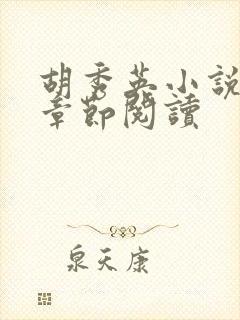 胡秀英小說
章節閱讀
泉天康